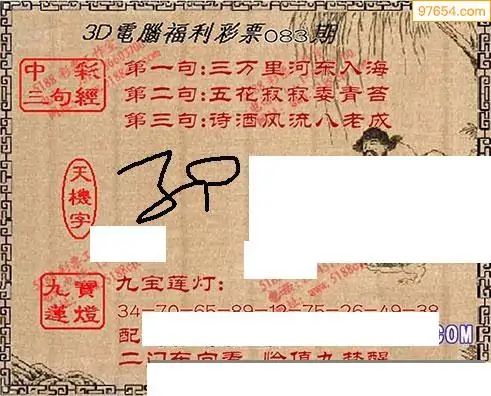 97654.com
3D電腦福利彩票083期
中彩
三句經
第一句:三万里河东入海
第二句:五花寂寂委青苔
第三句:诗酒风流八老成
天機字
九寶
蓮燈
九宝莲灯:
34-70-65-89-12-75-26-49-38
配
COM